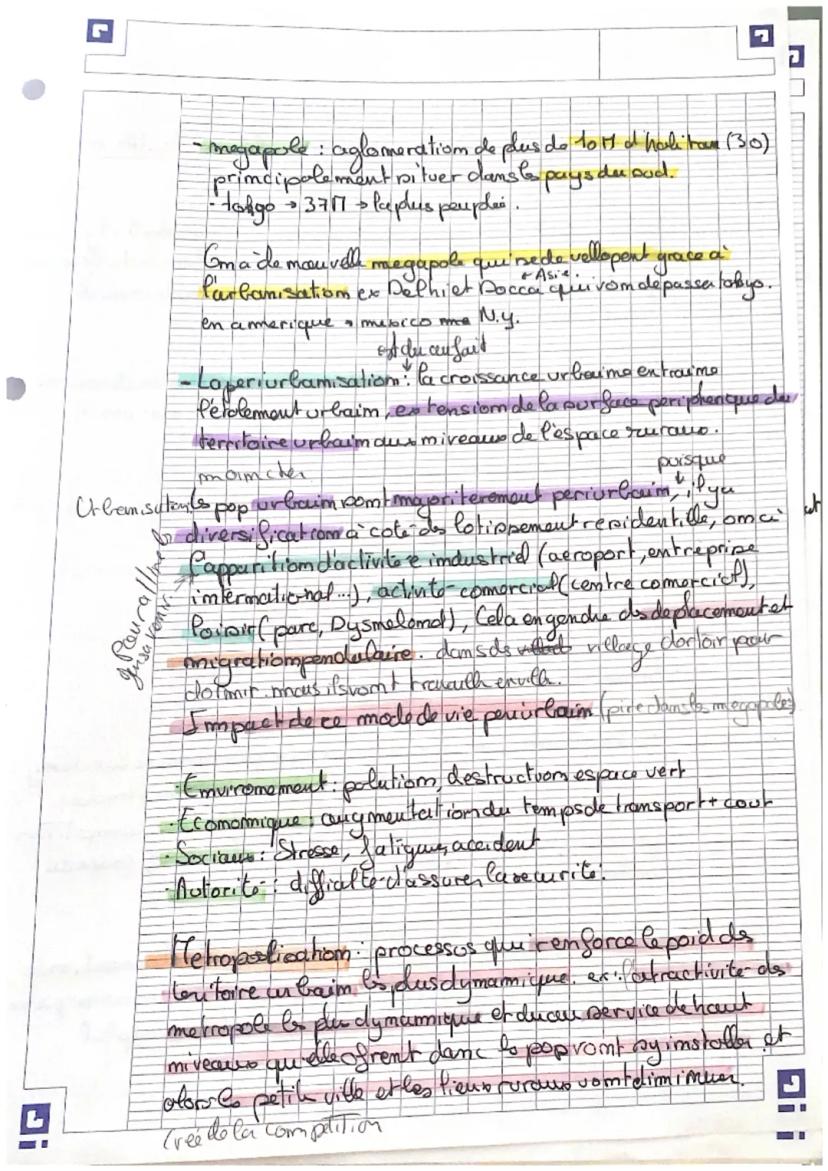 - megapole : aglomeration de plus de 10M d'habitan (30)
principalement situer dans les pays du sud.
· tokyo → 37M → la plus peuplée.
On a de nouvelle megapole qui se devellopent grace à
← Asie.
l'urbanisation ex Delhi et Docca qui vom depasser tokyo.
en amerique → mexico N.y.
est du au fait
- La periurbanisation : la croissance urbaine entraine
l'étalement urbain, extension de la surface peripherique du
territoire urbain aux niveaux de l'espace ruraux.
moin cher
puisque
Urbanisation les pop urbain sont majoriterement periurbain, il y a
diversification à coté des lotissement residentille, on a
et
l'apparition d'activité industriel (aeroport, entreprise
international...), activité comercial (centre comercial),
loisir (parc, Dysneland), Cela engendre des deplacement et
migration pendulaire. dans des village dortoir pour
dormir. mais ils vont travaille en ville.
Pour aller
Impact de ce mode de vie periurbain (pire dans les megapoles)
· Enviromement : polution, destruction espace vert
· Economique : augmentation du temps de transport + cout
· Sociaux : Stresse, fatigue, accident
· Autorité : difficalté d'assurer la securité.
Metropolisation : processus qui renforce le poid des
territoire urbain les plus dynamique. ex : l'atractivité des
metropole les plus dynamique et du au service de haut
niveaux qu'elle ofrent danc les pop vont s'y installer et
alors les petite ville et les lieux ruraux vont diminuer.
Créé de la compétition